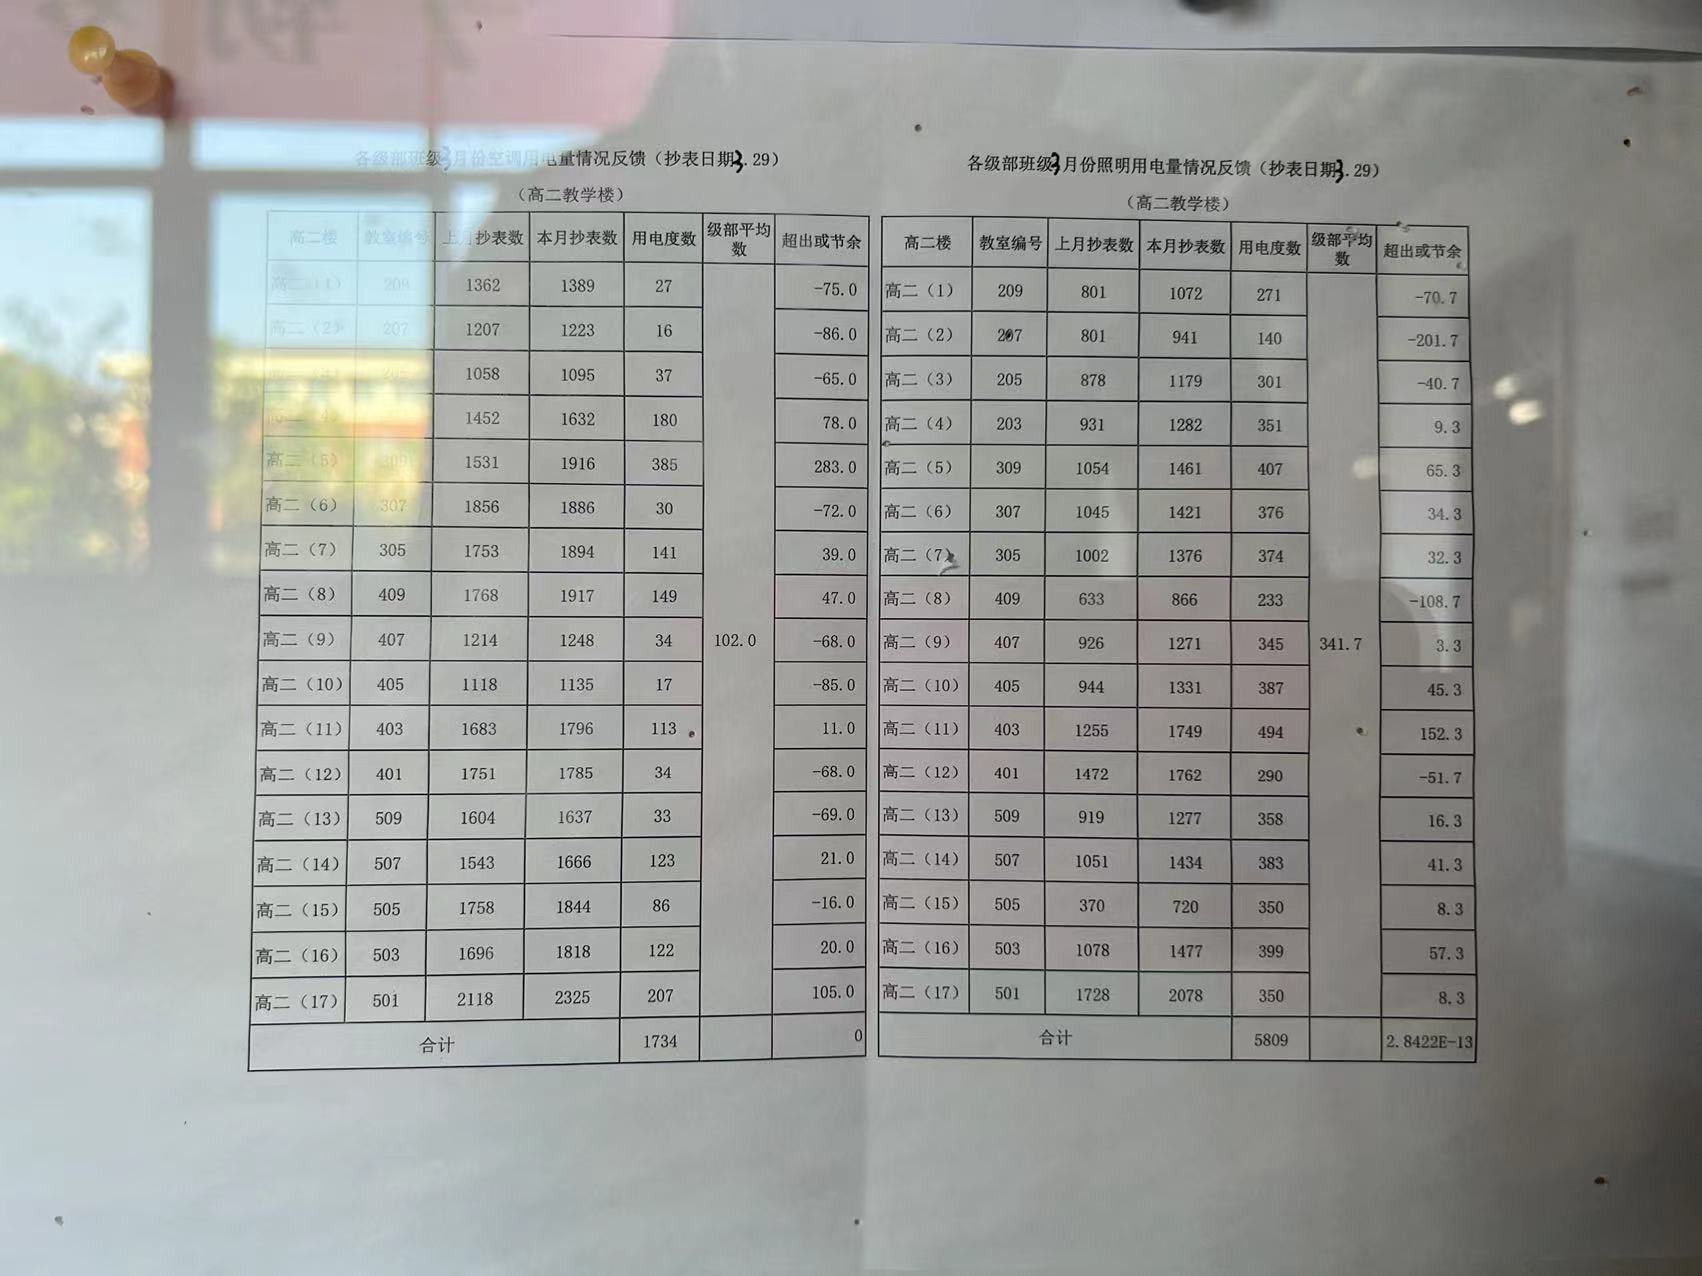 各级部班级3月份空调用电量情况反馈（抄表日期3.29）
（高二教学楼）
高二楼 教室编号 上月抄表数 本月抄表数 用电度数 级部平均数 超出或节余
高二（1） 209 1362 1389 27 -75.0
高二（2） 207 1207 1223 16 -86.0
1058 1095 37 -65.0
1452 1632 180 78.0
高二（5） 309 1531 1916 385 283.0
高二（6） 307 1856 1886 30 -72.0
高二（7） 305 1753 1894 141 39.0
高二（8） 409 1768 1917 149 47.0
高二（9） 407 1214 1248 34 102.0 -68.0
高二（10） 405 1118 1135 17 -85.0
高二（11） 403 1683 1796 113 11.0
高二（12） 401 1751 1785 34 -68.0
高二（13） 509 1604 1637 33 -69.0
高二（14） 507 1543 1666 123 21.0
高二（15） 505 1758 1844 86 -16.0
高二（16） 503 1696 1818 122 20.0
高二（17） 501 2118 2325 207 105.0
合计 1734 0
各级部班级3月份照明用电量情况反馈（抄表日期3.29）
（高二教学楼）
高二楼 教室编号 上月抄表数 本月抄表数 用电度数 级部平均数 超出或节余
高二（1） 209 801 1072 271 -70.7
高二（2） 207 801 941 140 -201.7
高二（3） 205 878 1179 301 -40.7
高二（4） 203 931 1282 351 9.3
高二（5） 309 1054 1461 407 65.3
高二（6） 307 1045 1421 376 34.3
高二（7） 305 1002 1376 374 32.3
高二（8） 409 633 866 233 -108.7
高二（9） 407 926 1271 345 341.7 3.3
高二（10） 405 944 1331 387 45.3
高二（11） 403 1255 1749 494 152.3
高二（12） 401 1472 1762 290 -51.7
高二（13） 509 919 1277 358 16.3
高二（14） 507 1051 1434 383 41.3
高二（15） 505 370 720 350 8.3
高二（16） 503 1078 1477 399 57.3
高二（17） 501 1728 2078 350 8.3
合计 5809 2.8422E-13